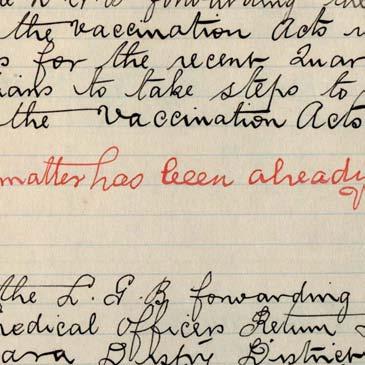 forwarding the
the Vaccination Acts
s for the recent Quar
ians to take steps to
the Vaccination Acts
matter has been already
the L. G. B forwarding
medical Officers Return
ara Dispy District